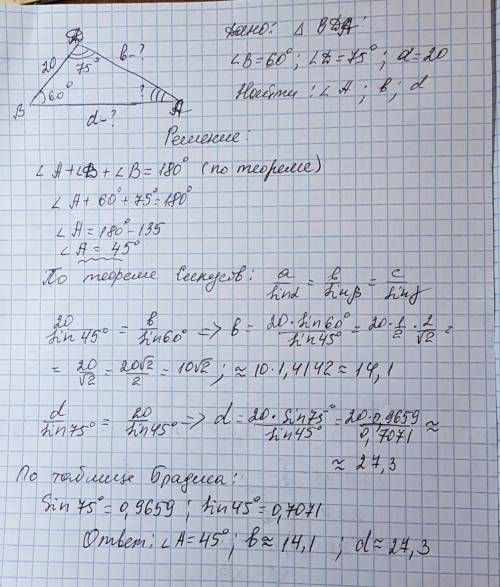 Д
20 75° b-?
B 60° ? A
d-?
Дано: △ BDA
∠B=60°; ∠D=75°; a=20
Найти: ∠A; b; d
Решение:
∠A+∠D+∠B=180° (по теореме)
∠A+60°+75°=180°
∠A=180°-135
∠A=45°
По теореме Синусов: a/sinα = b/sinβ = c/sinγ
20/sin45° = b/sin60° => b = 20·sin60°/sin45° = 20·1/2·2/√2 =
= 20/√2 = 20√2/2 = 10√2; ≈ 10·1,4142 ≈ 14,1
d/sin75° = 20/sin45° => d = 20·sin75°/sin45° = 20·0,9659/0,7071 ≈
≈ 27,3
По таблице Брадиса:
Sin75°=0,9659; sin45°=0,7071
Ответ: ∠A=45°; b≈14,1 ; d≈27,3